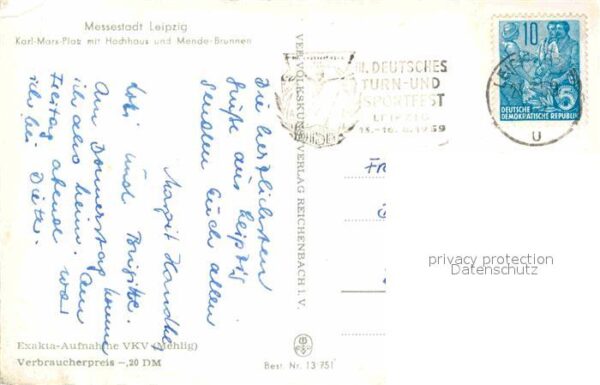 Messestadt Leipzig
Karl-Marx-Platz mit Hochhaus und Mende-Brunnen
Die herzlichsten
Grüße aus Leipzig
senden Euch allen
Margit
Lobi und Brigitte.
Am Donnerstag komme
ich also heim. Am
Freitag abend war
ich bei Dieter.
Exakta-Aufnahme VKV (Mehlig)
Verbraucherpreis -,20 DM
Best. Nr. 13 751
VEB VOLKSKUNSTVERLAG REICHENBACH I. V.
III. DEUTSCHES
TURN-UND
SPORTFEST
LEIPZIG
13.-16.8.1959
10
5
DEUTSCHE
DEMOKRATISCHE REPUBLIK
U
privacy protection
Datenschutz